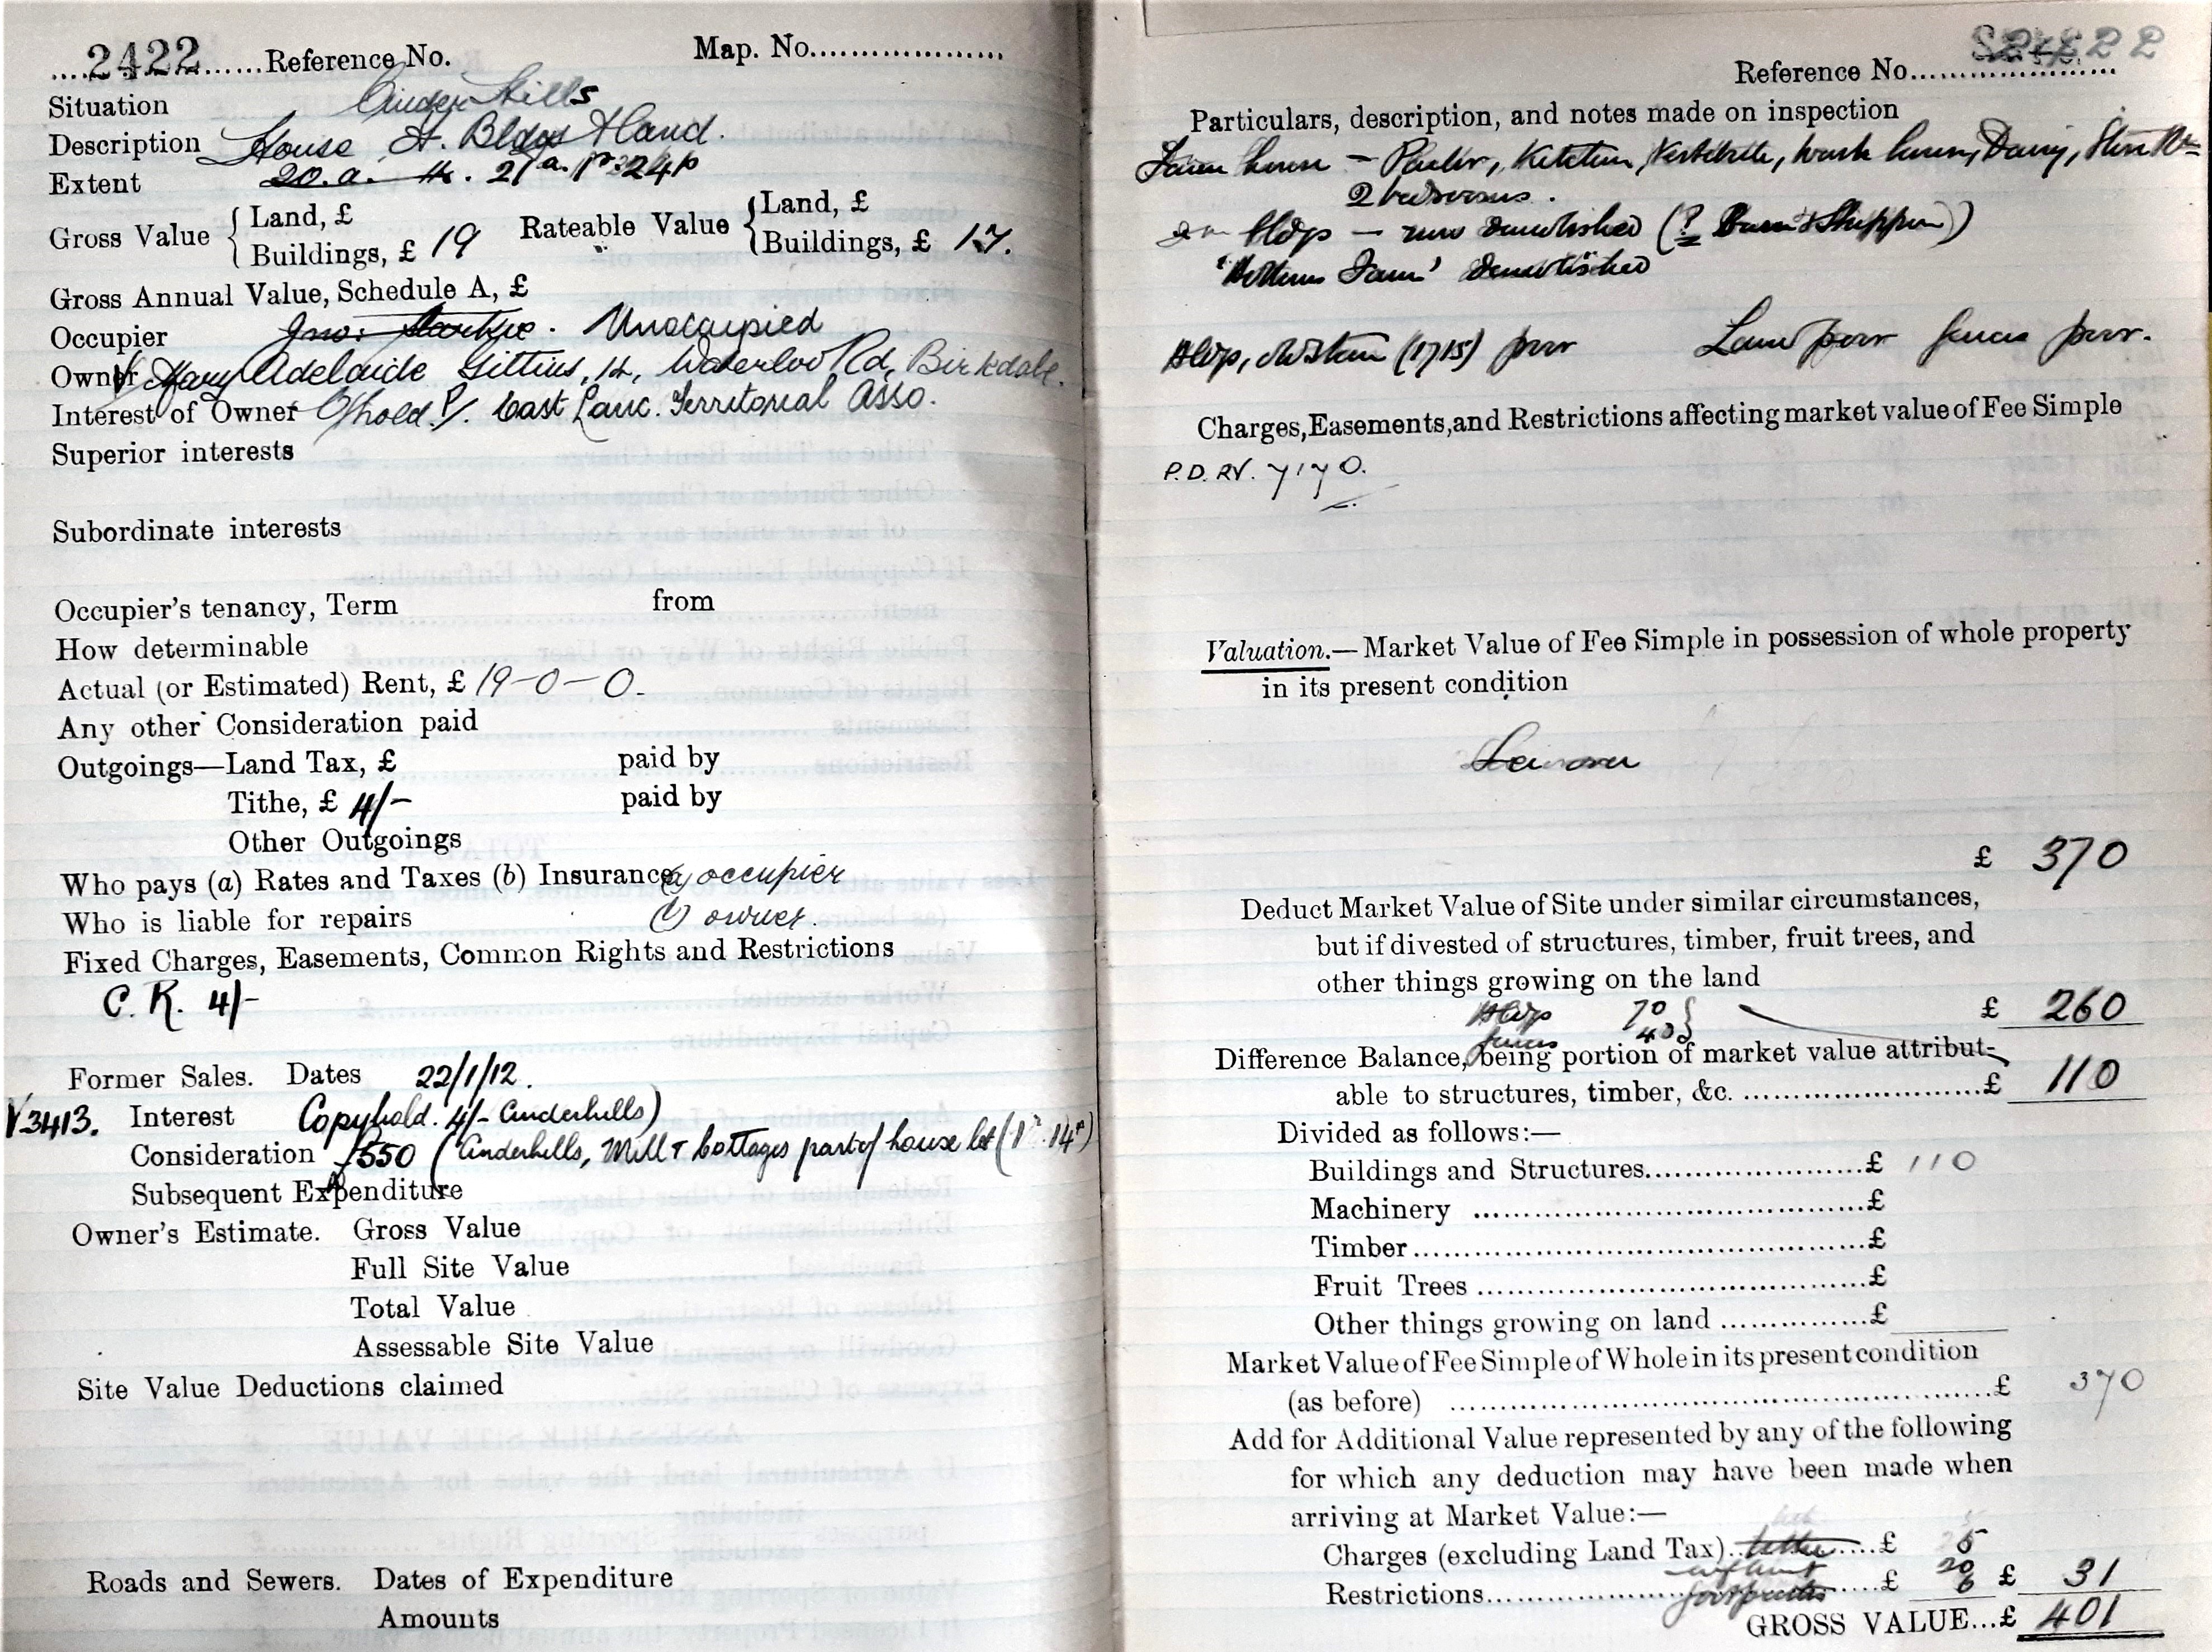 2422 Reference No. Map. No.
Situation Cinder Hills
Description House, A. Bldgs & land.
Extent 20. a. 21a. 1r. 24p
Gross Value { Land, £
Buildings, £ 19
Rateable Value { Land, £
Buildings, £ 17.
Gross Annual Value, Schedule A, £
Occupier Jno: Starkie. Unoccupied
Owner Mary Adelaide Gittins, 14, Waterloo Rd, Birkdale.
Interest of Owner C/hold. P/. East Lanc. Territorial Asso.
Superior interests
Subordinate interests
Occupier's tenancy, Term from
How determinable
Actual (or Estimated) Rent, £ 19-0-0.
Any other Consideration paid
Outgoings—Land Tax, £ paid by
Tithe, £ 4/- paid by
Other Outgoings
Who pays (a) Rates and Taxes (b) Insurance (a) occupier
Who is liable for repairs owner.
Fixed Charges, Easements, Common Rights and Restrictions
C. R. 4/-
Former Sales. Dates 22/1/12.
V.3413. Interest Copyhold. 4/- Cinderhills)
Consideration £550 (Cinderhills, Mill & Cottages part of house let (1r. 14p)
Subsequent Expenditure
Owner's Estimate. Gross Value
Full Site Value
Total Value
Assessable Site Value
Site Value Deductions claimed
Roads and Sewers. Dates of Expenditure
Amounts
Reference No. 2422
Particulars, description, and notes made on inspection
Farm house - Parlor, Kitchen, Vestibule, wash house, Dairy, Store Rm
2 bedrooms.
bldgs - now demolished (? Barn & Shippon)
'Bottoms Farm' demolished
Bldgs, old stone (1715) poor Land poor fences poor.
Charges, Easements, and Restrictions affecting market value of Fee Simple
P.D. RV. 7170.
Valuation.—Market Value of Fee Simple in possession of whole property
in its present condition
£ 370
Deduct Market Value of Site under similar circumstances,
but if divested of structures, timber, fruit trees, and
other things growing on the land
Bldgs 70 } £ 260
fences 40
Difference Balance, being portion of market value attribut-
able to structures, timber, &c. £ 110
Divided as follows:—
Buildings and Structures £ 110
Machinery £
Timber £
Fruit Trees £
Other things growing on land £
Market Value of Fee Simple of Whole in its present condition
(as before) £ 370
Add for Additional Value represented by any of the following
for which any deduction may have been made when
arriving at Market Value:—
Charges (excluding Land Tax) tithe £ 5
Restrictions footpaths £ 20 6 £ 31
GROSS VALUE...£ 401